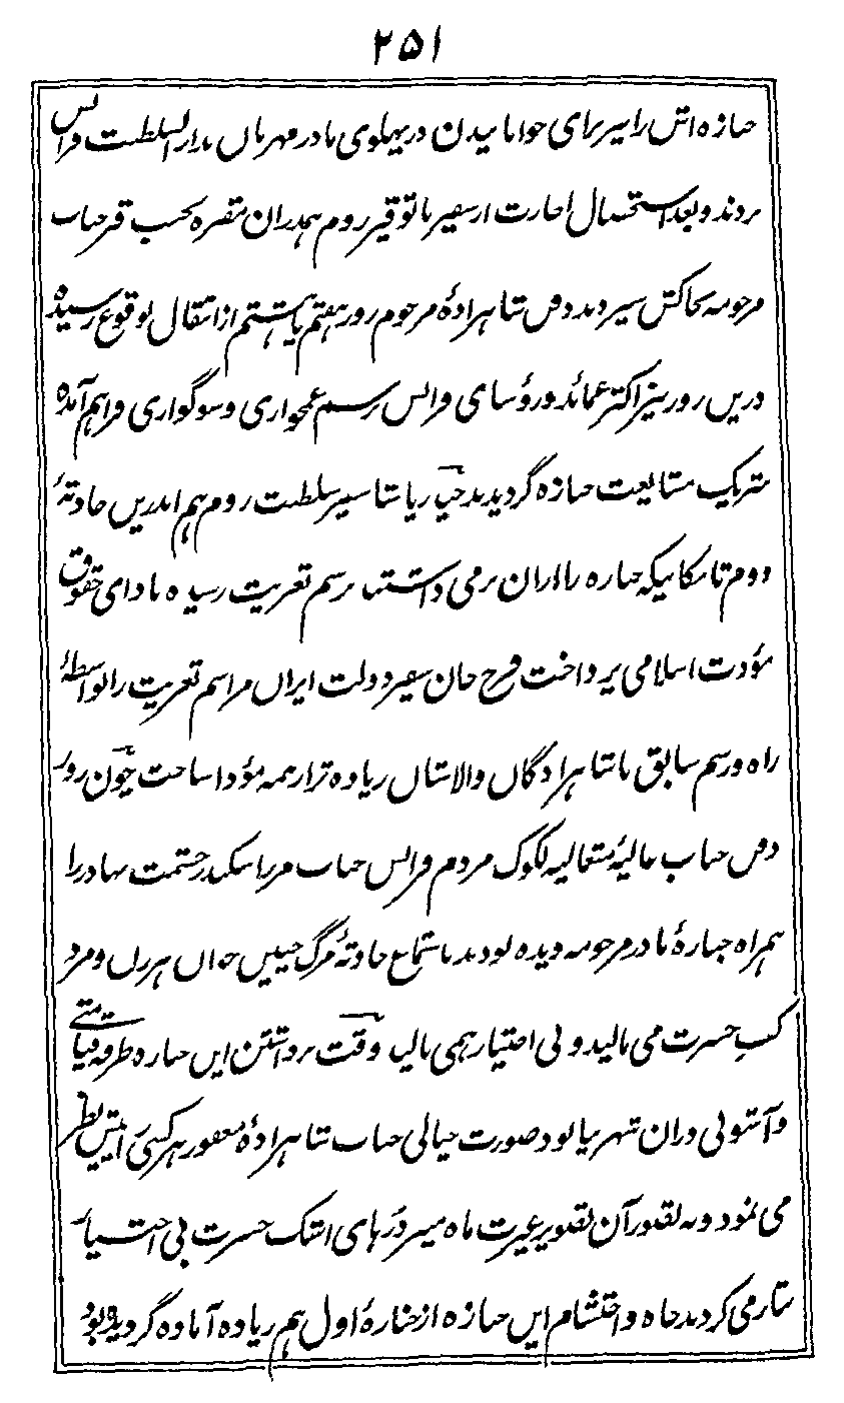 ۲۵۱
جنازه اش را نیز برای خوابانیدن در پهلوی مادر مهربان بدار السلطنت فرانس
بردند و بعد استحصال اجازت از سفیر با توقیر روم همدران مقبره بجنب قبر جناب
مرحومه بخاکش سپردند دفن شاهزادهٔ مرحوم روز هفتم یا هشتم از انتقال بوقوع رسیده
درین روز نیز اکثر عمائد و رؤسای فرانس برسم غمخواری و سوگواری فراهم آمده
شریک مشایعت جنازه گردیدند حیدر پاشا سفیر سلطنت روم هم اندرین حادثهٔ
دوم تا مکانیکه جنازه را ازان برمی داشتند برسم تعزیت رسیده بادای حقوق
مؤدت اسلامی پرداخت فرخ خان سفیر دولت ایران مراسم تعزیت را بواسطهٔ
راه و رسم سابق با شاهزادگان والاشان زیاده تر از همه مؤدا ساخت چون روز
دفن جناب عالیهٔ متعالیه لکوک مردم فرانس جناب مرزا سکندر حشمت بهادر را
همراه جنازهٔ مادر مرحومه دیده بودند باستماع حادثهٔ مرگ چنین جوان هر زن و مرد
کف حسرت می مالید و بی اختیار همی نالید وقت برداشتن این جنازه طرفه قیامتے
و آشوبی دران شهر بپا بود صورت خیالی جناب شاهزادهٔ مغفور هر کسی را پیش نظر
می نمود و به تصور آن تصویر غیرت ماه منیر دُرهای اشک حسرت بی اختیار
نثار می کردند جاه و احتشام این جنازه از جنازهٔ اول هم زیاده آماده گردیده بود